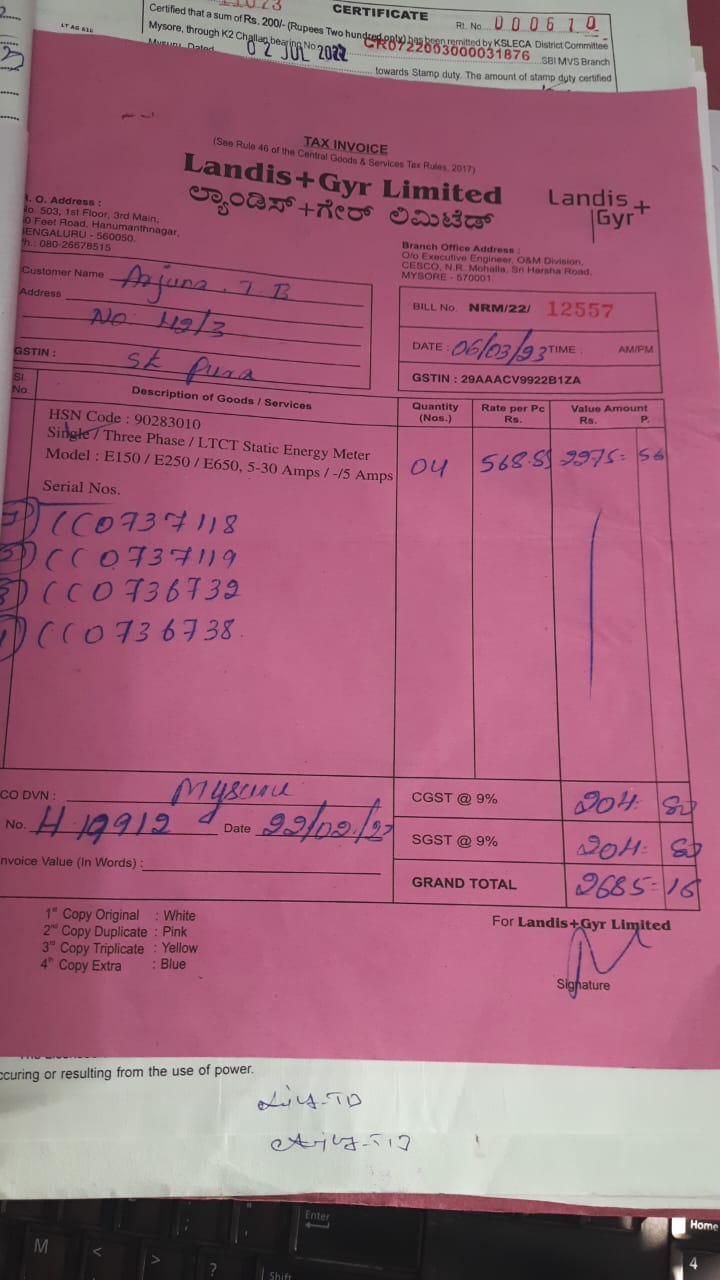 11023
CERTIFICATE
Rt. No. 000610
LT AG 616
Certified that a sum of Rs. 200/- (Rupees Two hundred only) has been remitted by KSLECA District Committee
Mysore, through K2 Challan bearing No. CR0722003000031876 SBI MVS Branch
Dated 02 JUL 2022 towards Stamp duty. The amount of stamp duty certified
TAX INVOICE
(See Rule 46 of the Central Goods & Services Tax Rules, 2017)
Landis+Gyr Limited
ಲ್ಯಾಂಡಿಸ್+ಗೇರ್ ಲಿಮಿಟೆಡ್
Landis+
Gyr
. O. Address :
No. 503, 1st Floor, 3rd Main,
0 Feet Road, Hanumanthnagar,
BENGALURU - 560050.
Ph.: 080-26678515
Branch Office Address :
O/o Executive Engineer, O&M Division,
CESCO, N.R. Mohalla, Sri Harsha Road,
MYSORE - 570001.
Customer Name Arjuna. J B
Address
No 42/3
GSTIN : St Pura
BILL No. NRM/22/ 12557
DATE : 06/03/23 TIME : AM/PM
GSTIN : 29AAACV9922B1ZA
Sl. No. Description of Goods / Services Quantity (Nos.) Rate per Pc Rs. Value Amount Rs. P.
HSN Code : 90283010
Single / Three Phase / LTCT Static Energy Meter
Model : E150 / E250 / E650, 5-30 Amps / -/5 Amps 04 568.89 2275= 56
Serial Nos.
1) CC0737118
2) CC0737119
3) CC0736732
4) CC0736738.
CO DVN : Mysuru
No. H 19912 Date 22/02/23
nvoice Value (In Words) :
CGST @ 9% 204= 80
SGST @ 9% 204= 80
GRAND TOTAL 2685=16
1st Copy Original : White
2nd Copy Duplicate : Pink
3rd Copy Triplicate : Yellow
4th Copy Extra : Blue
For Landis+Gyr Limited
Signature
ccuring or resulting from the use of power.
Enter
Home
M
<
>
?
Shift
4